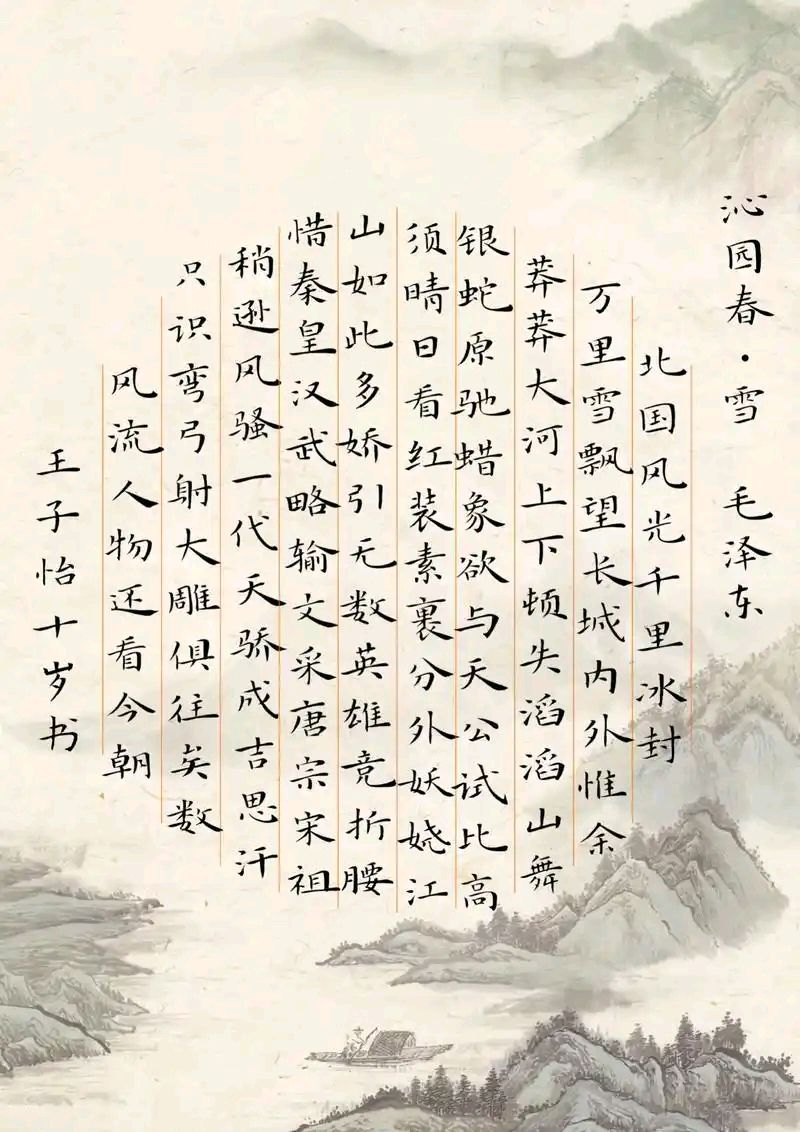 沁园春·雪 毛泽东
北国风光千里冰封
万里雪飘望长城内外惟余
莽莽大河上下顿失滔滔山舞
银蛇原驰蜡象欲与天公试比高
须晴日看红装素裹分外妖娆江
山如此多娇引无数英雄竞折腰
惜秦皇汉武略输文采唐宗宋祖
稍逊风骚一代天骄成吉思汗
只识弯弓射大雕俱往矣数
风流人物还看今朝
王子怡十岁书